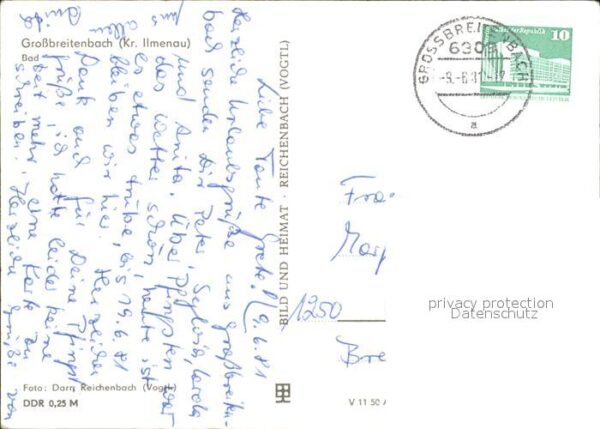 Großbreitenbach (Kr. Ilmenau)
Bad
Liebe Tante Grete! 9.6.81
Herzliche Urlaubsgrüße aus Großbreiten-
bach senden Dir Peter,
und Anita. Über Pfingsten war
das Wetter schön, heute ist
es etwas trübe, bis 19.6.81
bleiben wir hier. Herzlichen
Dank auch für Deine Pfingst
grüße, ich hatte leider keine
Zeit mehr, eine Karte zu
schreiben. Herzliche Grüße von
uns allen
BILD UND HEIMAT · REICHENBACH (VOGTL)
GROSSBREITENBACH
6309
-9.-6.81-17
a
10
1250
privacy protection
Datenschutz
Foto: Darr, Reichenbach (Vogtl)
DDR 0,25 M
V 11 50